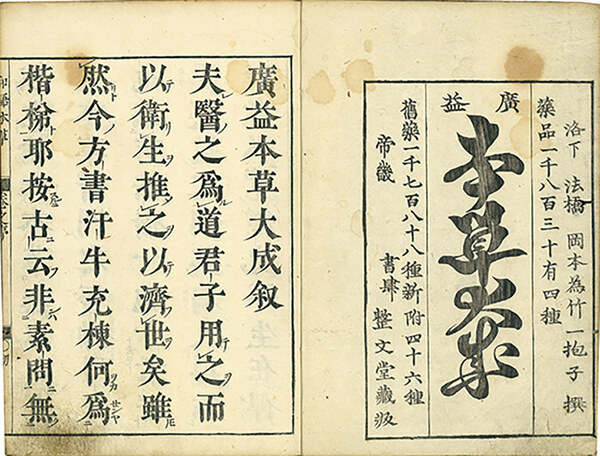 廣益
洛下 法橋 岡本為竹一抱子 撰
藥品一千八百三十有四種
本草大成
舊藥一千七百八十八種新附四十六種
帝畿 書肆 整文堂藏板
廣益本草大成叙
夫醫之爲道君子用之而
以衛生推之以濟世矣雖
然今方書汗牛充棟何爲
楷耶按古云非素問無
和語本草